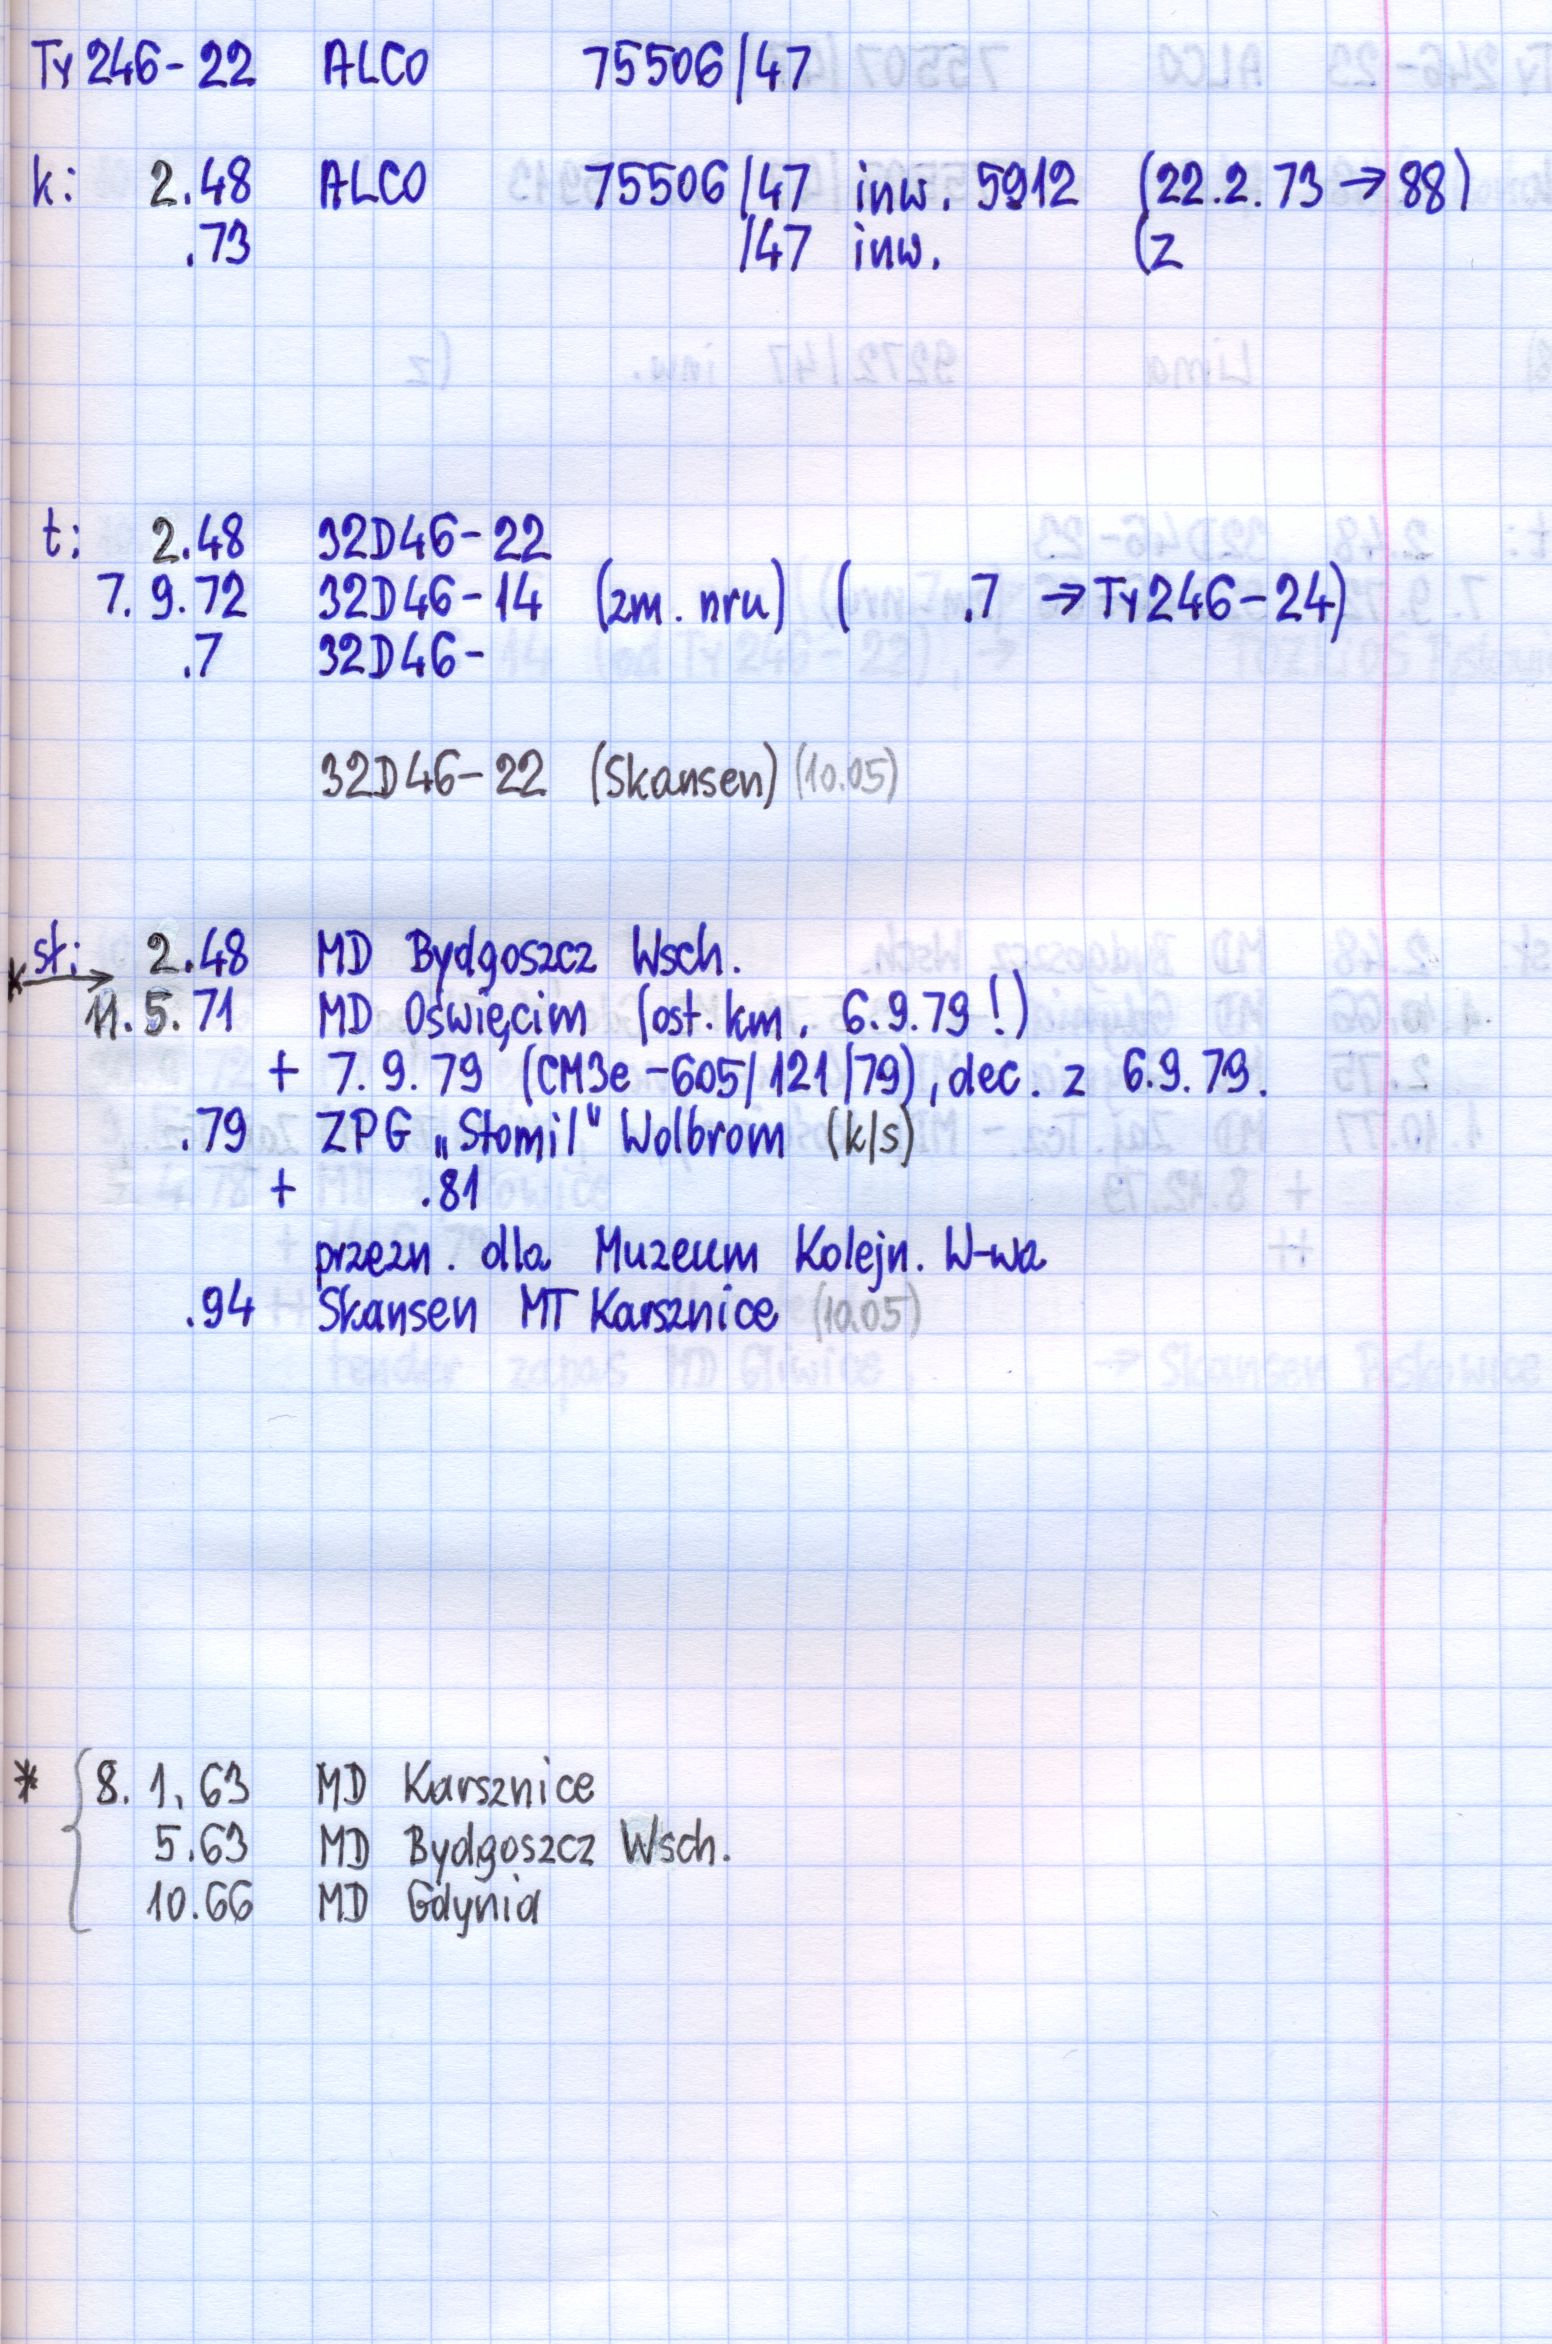 Ty246-22 ALCO 75506/47
k: 2.48 ALCO 75506/47 inw. 5912 (22.2.73 → 88)
.73 /47 inw. (z
t: 2.48 32D46-22
7.9.72 32D46-14 (zm. nru) ( .7 → Ty246-24)
.7 32D46-
32D46-22 (Skansen) (10.05)
st: 2.48 MD Bydgoszcz Wsch.
* → 11.5.71 MD Oświęcim (ost. km. 6.9.79!)
+ 7.9.79 (CM3e-605/121/79), dec. z 6.9.79.
.79 ZPG „Stomil" Wolbrom (k/s)
+ .81
przezn. dla Muzeum Kolejn. W-wa
.94 Skansen MT Karsznice (10.05)
* { 8.1.63 MD Karsznice
5.63 MD Bydgoszcz Wsch.
10.66 MD Gdynia